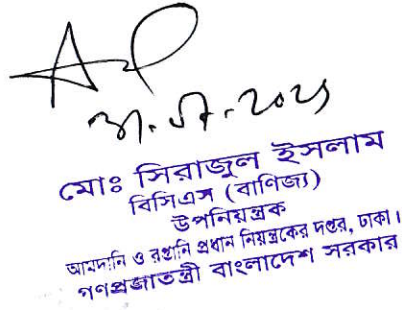 মোঃ সিরাজুল ইসলাম
বিসিএস (বাণিজ্য)
উপনিয়ন্ত্রক
আমদানি ও রপ্তানি প্রধান নিয়ন্ত্রকের দপ্তর, ঢাকা।
গণপ্রজাতন্ত্রী বাংলাদেশ সরকার